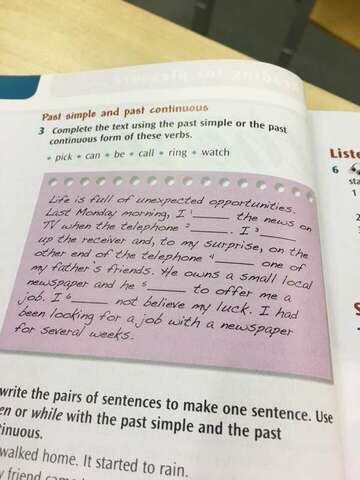 Past simple and past continuous
3 Complete the text using the past simple or the past
continuous form of these verbs.
• pick • can • be • call • ring • watch
Life is full of unexpected opportunities.
Last Monday morning, I 1______ the news on
TV when the telephone 2______. I 3______
up the receiver and, to my surprise, on the
other end of the telephone 4______ one of
my father's friends. He owns a small local
newspaper and he 5______ to offer me a
job. I 6______ not believe my luck. I had
been looking for a job with a newspaper
for several weeks.
write the pairs of sentences to make one sentence. Use
en or while with the past simple and the past
tinuous.
walked home. It started to rain.
Liste
6
sta
1
2
3